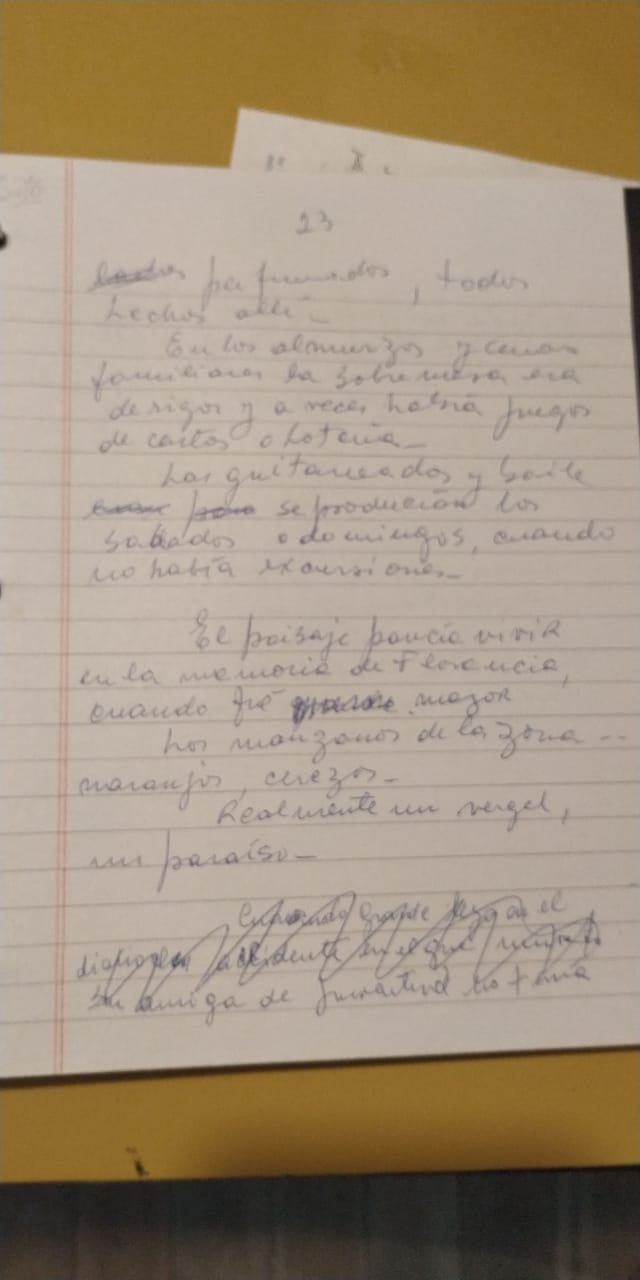 23
perfumados, todos
hechos allí_
En los almuerzos y cenas
familiares la sobremesa era
de rigor y a veces había juegos
de cartas o lotería_
Las guitarreadas y baile
se producían los
sábados o domingos, cuando
no había excursiones_
El paisaje parecía vivir
en la memoria de Florencia,
cuando fué mayor
Los manzanos de la zona --
naranjos, cerezos_
Realmente un vergel,
un paraíso_
Cuando grande leyó en el
accidente en el que
su amiga de juventud